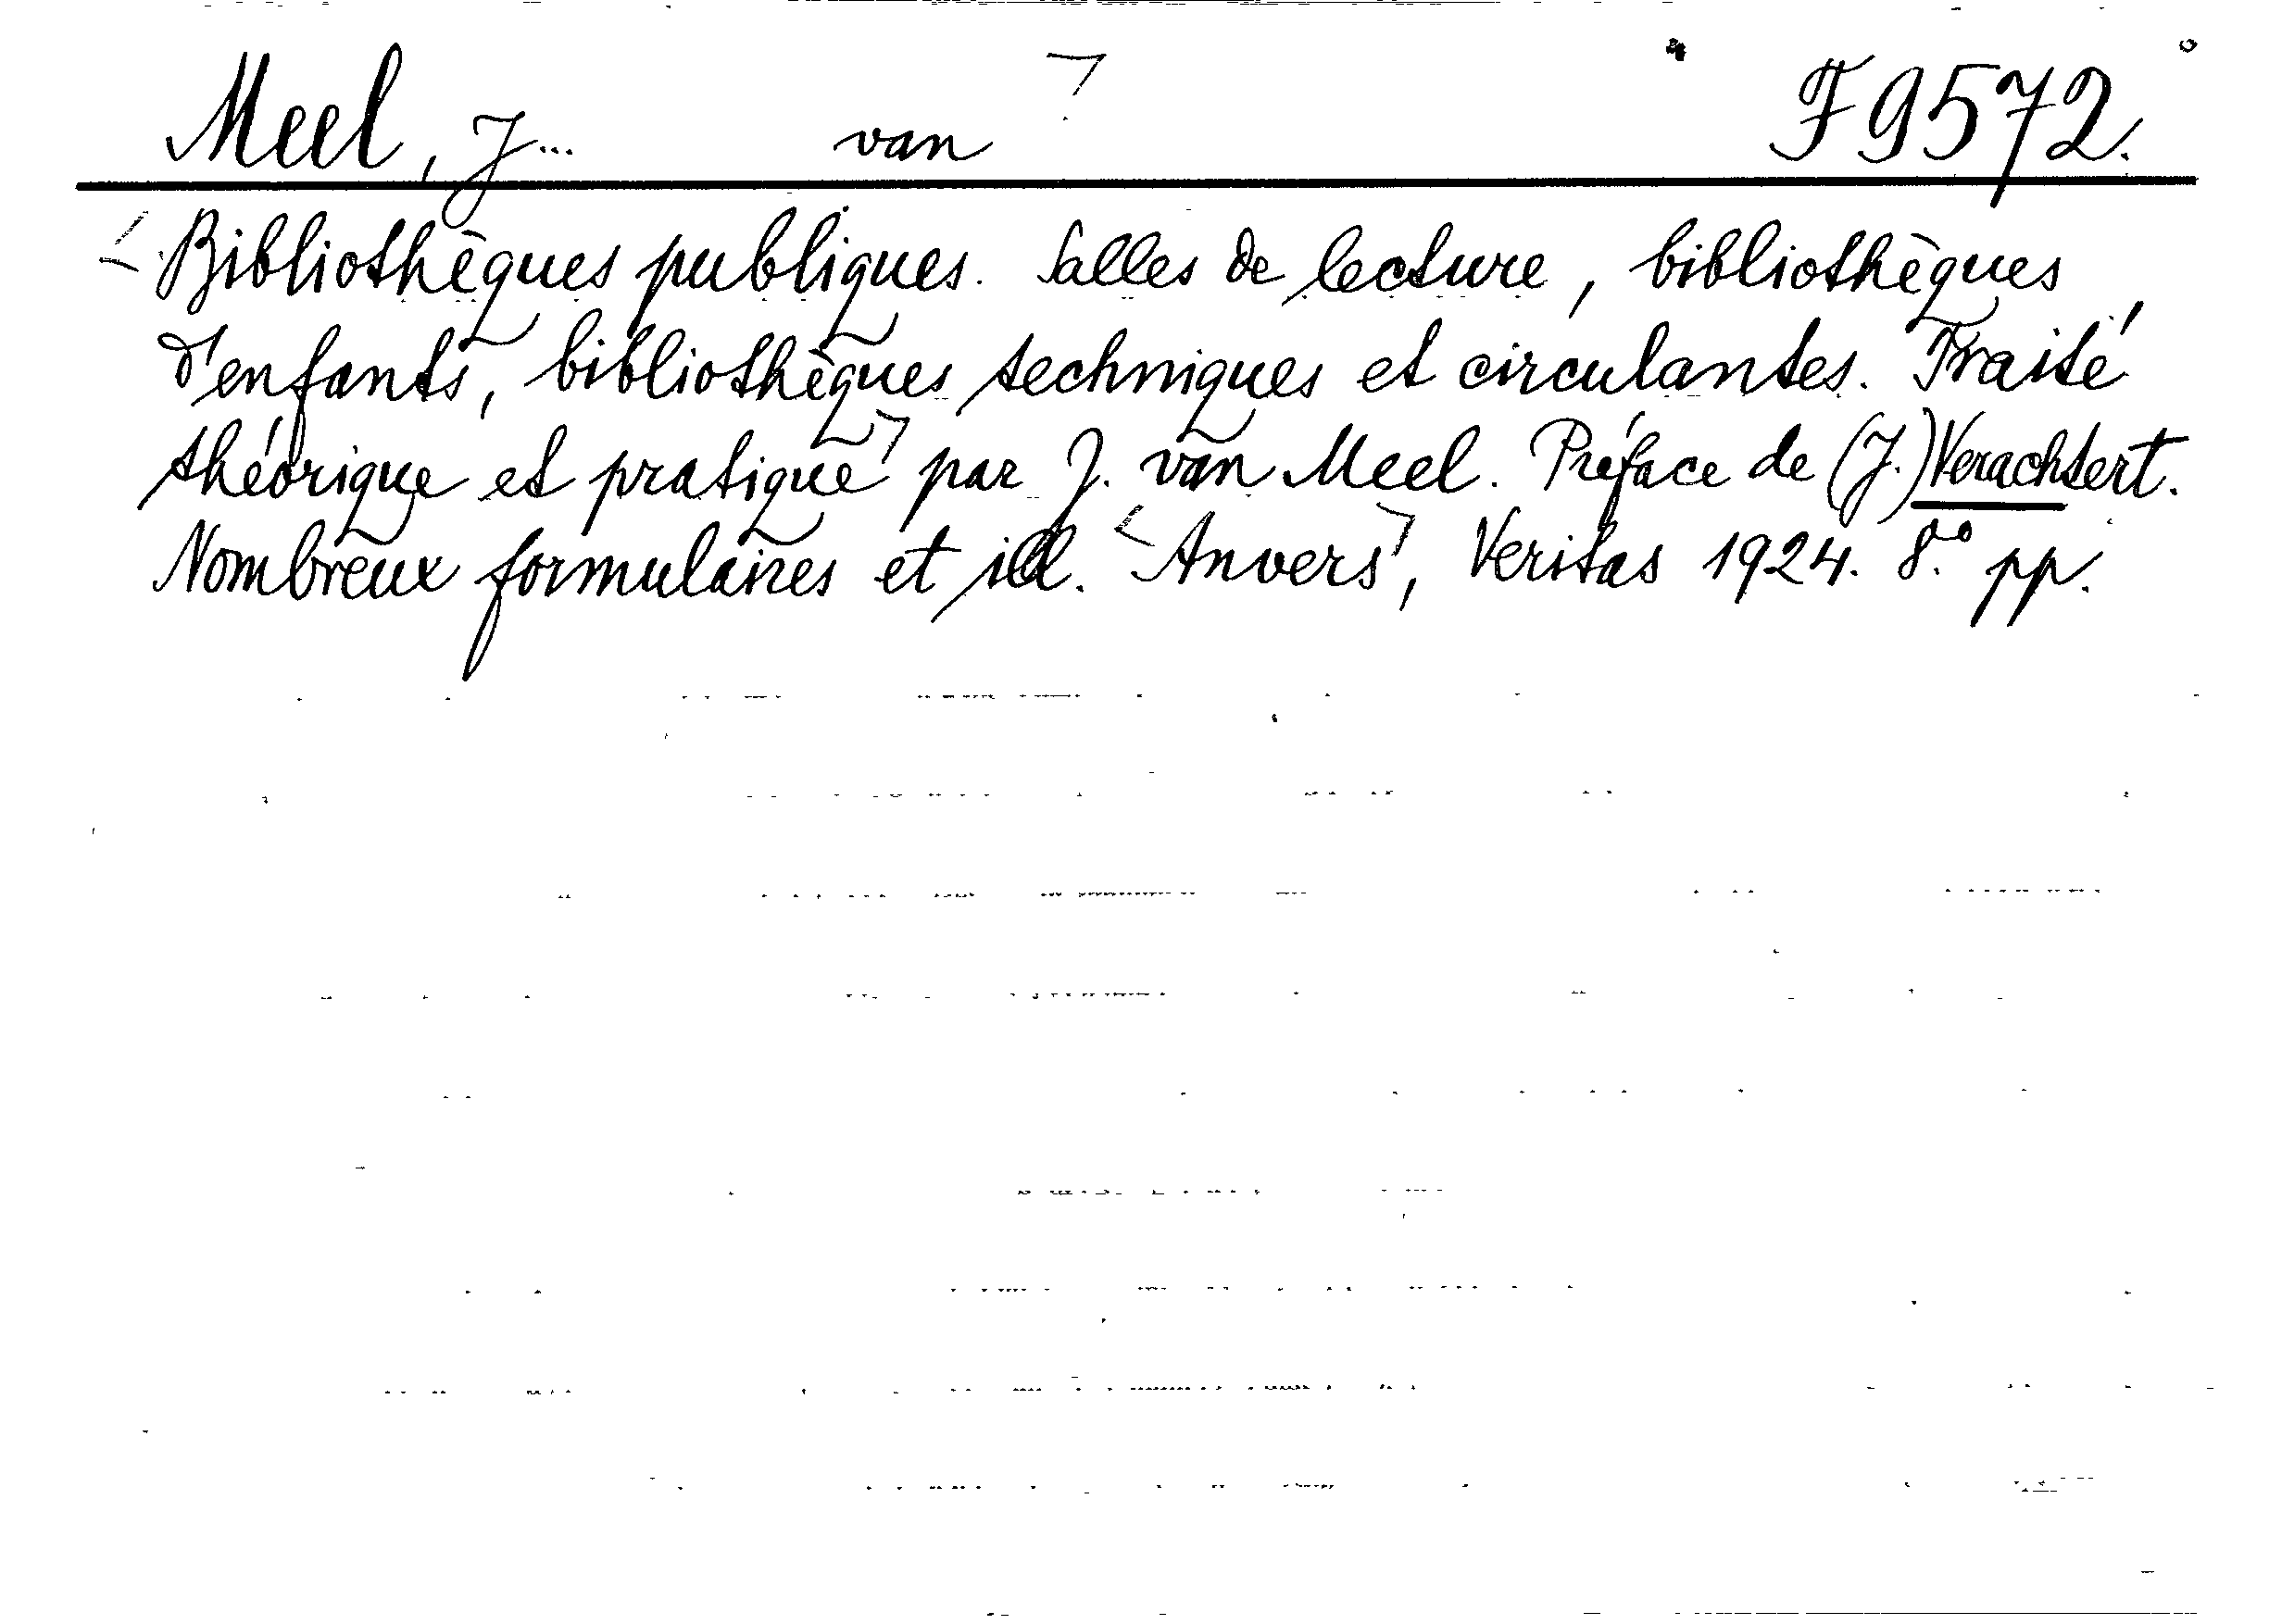 Meel, J... van F 9572.
Bibliothèques publiques. Salles de lecture, bibliothèques
d'enfants, bibliothèques techniques et circulantes. Traité
théorique et pratique par J. van Meel. Préface de (J.) Verachtert.
Nombreux formulaires et ill. Anvers, Veritas 1924. 8.° pp.